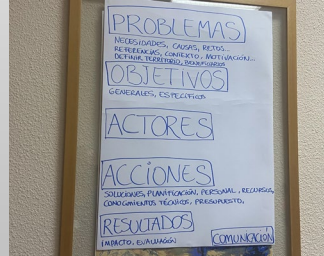 PROBLEMAS
NECESIDADES, CAUSAS, RETOS...
REFERENCIAS, CONTEXTO, MOTIVACIÓN...
DEFINIR TERRITORIO, BENEFICIARIOS
OBJETIVOS
GENERALES, ESPECÍFICOS
ACTORES
ACCIONES
SOLUCIONES, PLANIFICACIÓN, PERSONAL, RECURSOS,
CONOCIMIENTOS TÉCNICOS, PRESUPUESTO,
RESULTADOS
IMPACTO, EVALUACIÓN
COMUNICACIÓN